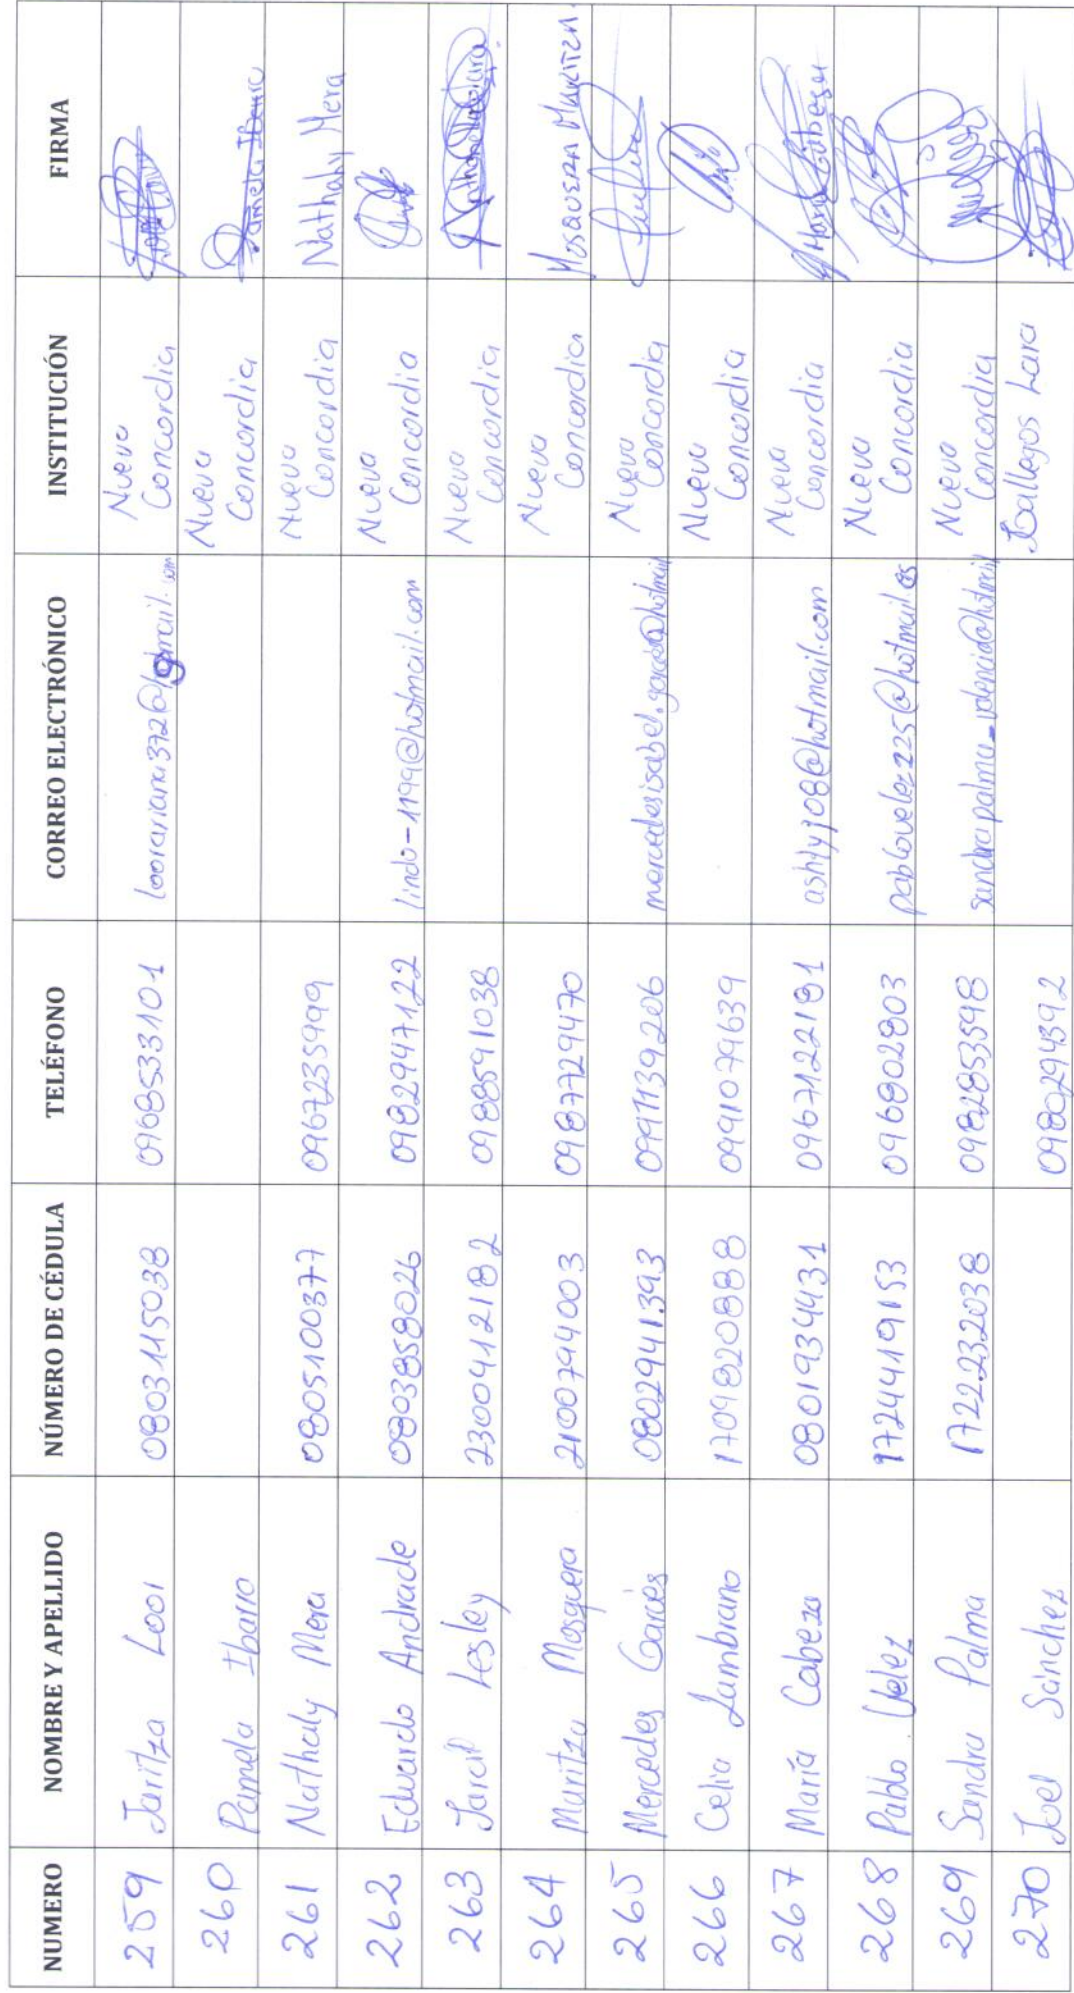 NUMERO NOMBRE Y APELLIDO NÚMERO DE CÉDULA TELÉFONO CORREO ELECTRÓNICO INSTITUCIÓN FIRMA
259 Jaritza Loor 0803115038 0968533101 Nueva Concordia
260 Pamela Ibarra Nueva Concordia Pamela Ibarra
261 Nathaly Mera 0805100377 0967235999 Nueva Concordia Nathaly Mera
262 Eduardo Andrade 0803858026 0982947122 lindo-1199@hotmail.com Nueva Concordia
263 Lesley 2300412182 0988591038 Nueva Concordia
264 Maritza Mosquera 2100794003 0987729470 Nueva Concordia Mosquera Maritza
265 Mercedes Garcés 0802941393 0991139206 mercedesisabel.garces@hotmail Nueva Concordia
266 Celia Zambrano 1709820888 0991079639 Nueva Concordia
267 María Cabeza 0801934431 0967122181 ashlyj08@hotmail.com Nueva Concordia María Cabeza
268 Pablo Velez 1724419153 096802803 pablovelez225@hotmail.es Nueva Concordia
269 Sandra Palma 1722232038 0982853598 sandrapalma_valencia@hotmail Nueva Concordia
270 Joel Sánchez 0980294392 Gallegos Lara